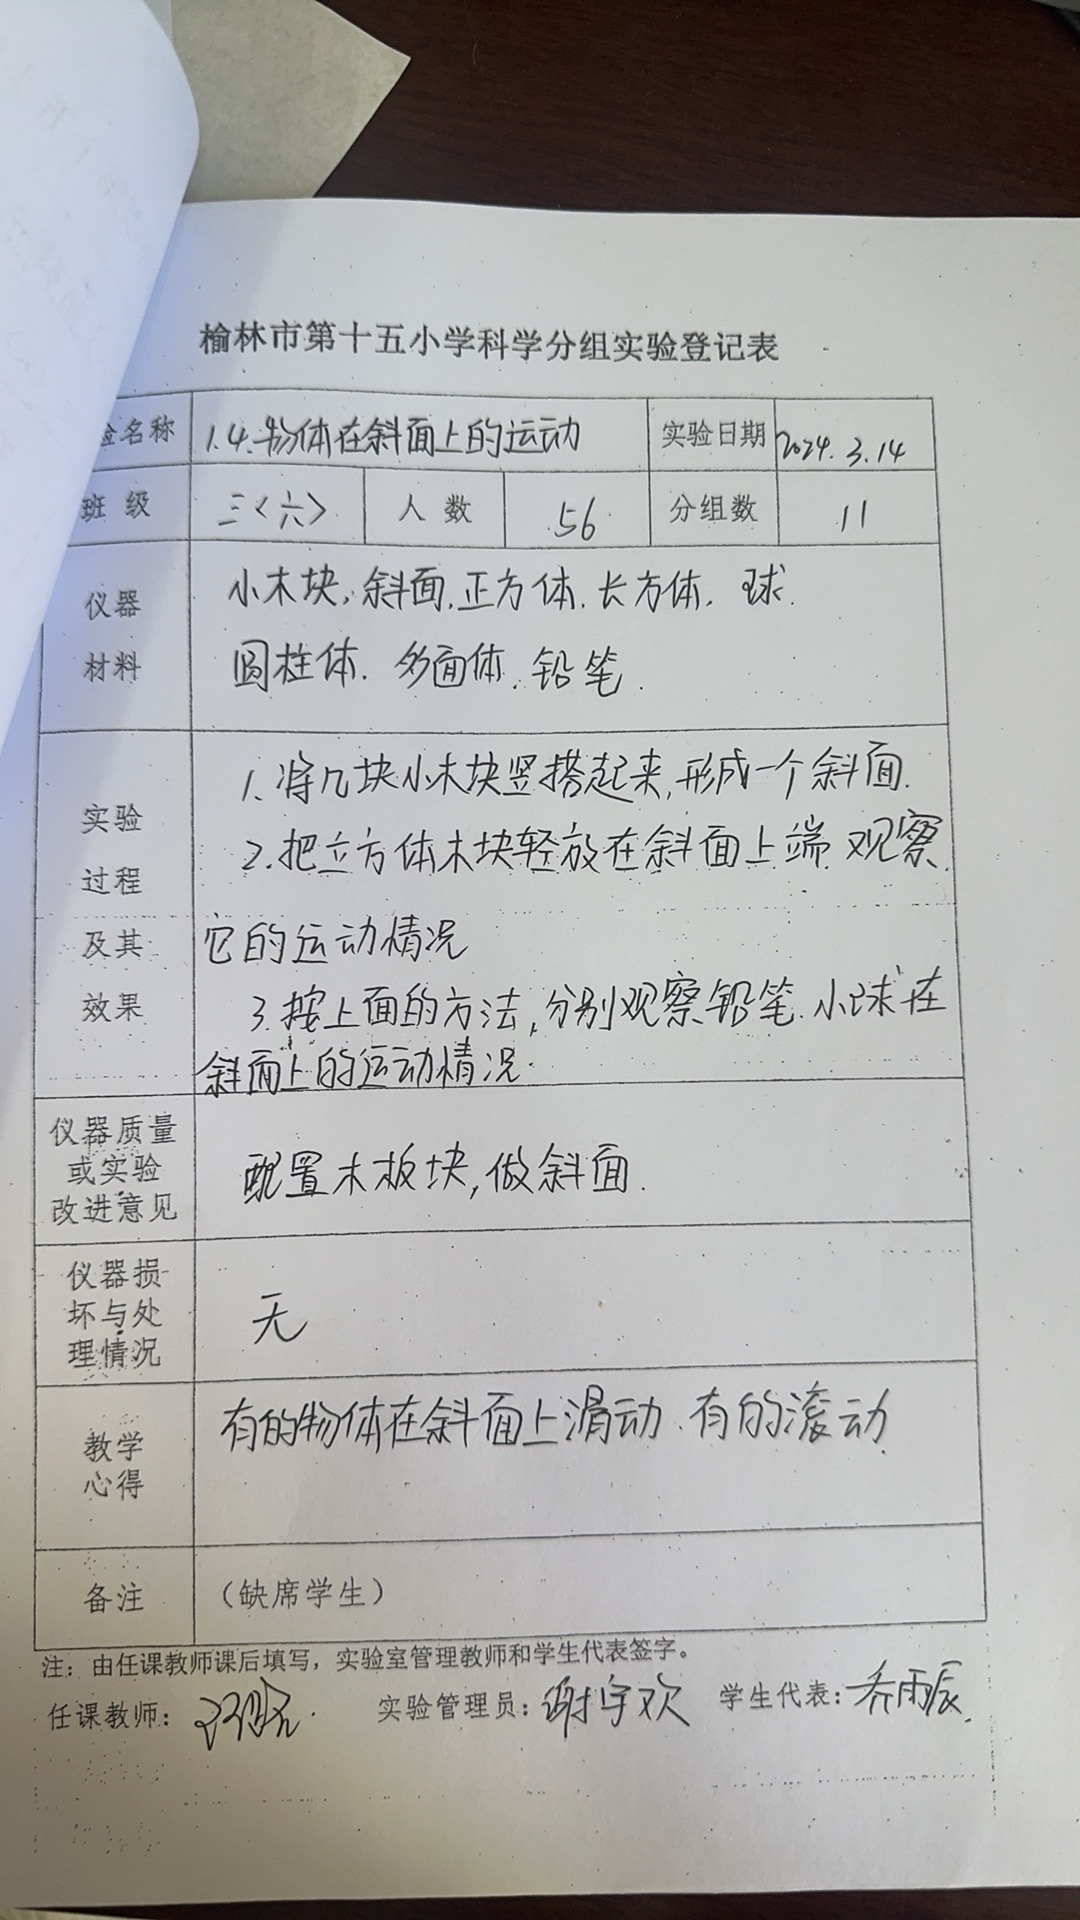 榆林市第十五小学科学分组实验登记表
验名称 1.4.物体在斜面上的运动 实验日期 2024.3.14
班级 三〈六〉 人数 56 分组数 11
仪器 小木块,斜面,正方体.长方体. 球.
材料 圆柱体. 多面体.铅笔.
1.将几块小木块竖搭起来,形成一个斜面.
实验
2.把立方体木块轻放在斜面上端.观察.
过程
及其 它的运动情况
效果 3.按上面的方法,分别观察铅笔.小球在
斜面上的运动情况.
仪器质量
或实验 配置木板块,做斜面.
改进意见
仪器损
坏与处 无
理情况
有的物体在斜面上滑动.有的滚动.
教学
心得
备注 (缺席学生)
注:由任课教师课后填写,实验室管理教师和学生代表签字。
任课教师: 实验管理员:谢宇欢 学生代表:乔雨辰.